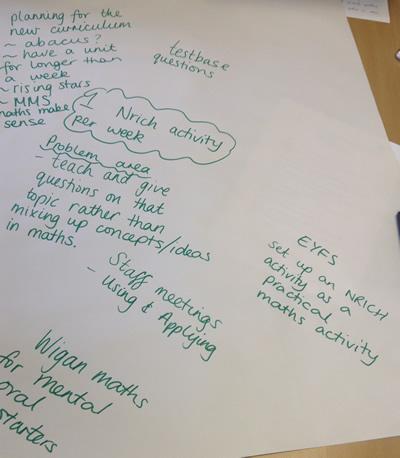 planning for the
new curriculum
~ abacus?
~ have a unit
for longer than
a week
~ rising stars
~ MMS
maths make
sense
testbase
questions
1 Nrich activity
per week
Problem area
- teach and give
questions on that
topic rather than
mixing up concepts/ideas
in maths.
Staff meetings
- Using & Applying
EYFS
set up an NRICH
activity as a
practical
maths activity
Wigan maths
for mental
oral
starters